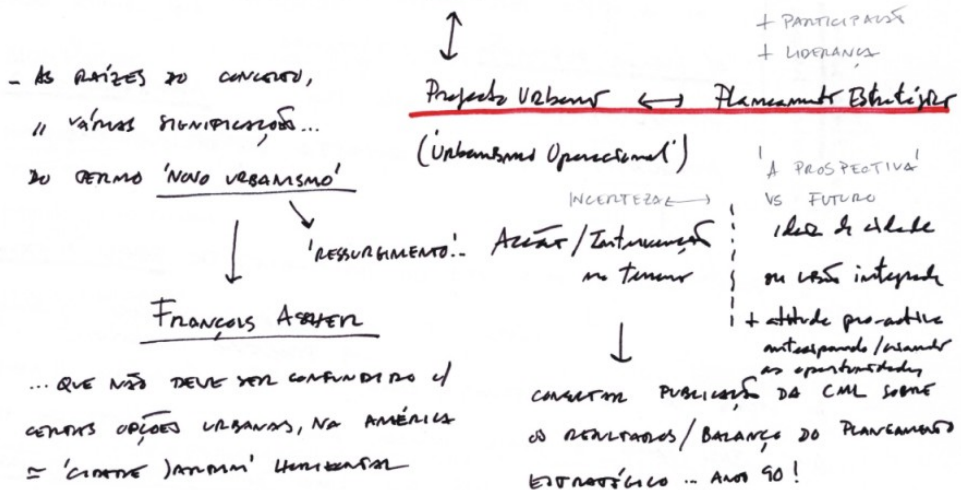 - AS RAÍZES DO CONCEITO,
" VÁRIAS SIGNIFICAÇÕES...
DO TERMO 'NOVO URBANISMO'
'RESSURGIMENTO'..
FRANÇOIS ASCHER
... QUE NÃO DEVE SER CONFUNDIDO C/
CERTAS OPÇÕES URBANAS, NA AMÉRICA
= 'CIDADE JARDIM' HORIZONTAL
+ PARTICIPAÇÃO
+ LIDERANÇA
Projecto Urbano ↔ Planeamento Estratégico
('Urbanismo Operacional')
INCERTEZA ↔
Acção/Intervenção
no terreno
'A PROSPECTIVA'
VS FUTURO
ideia de cidade
ou visão integrada
+ atitude pro-activa
antecipando/criando
as oportunidades
CONSULTAR PUBLICAÇÃO DA CML SOBRE
OS RESULTADOS/BALANÇO DO PLANEAMENTO
ESTRATÉGICO .. ANOS 90!